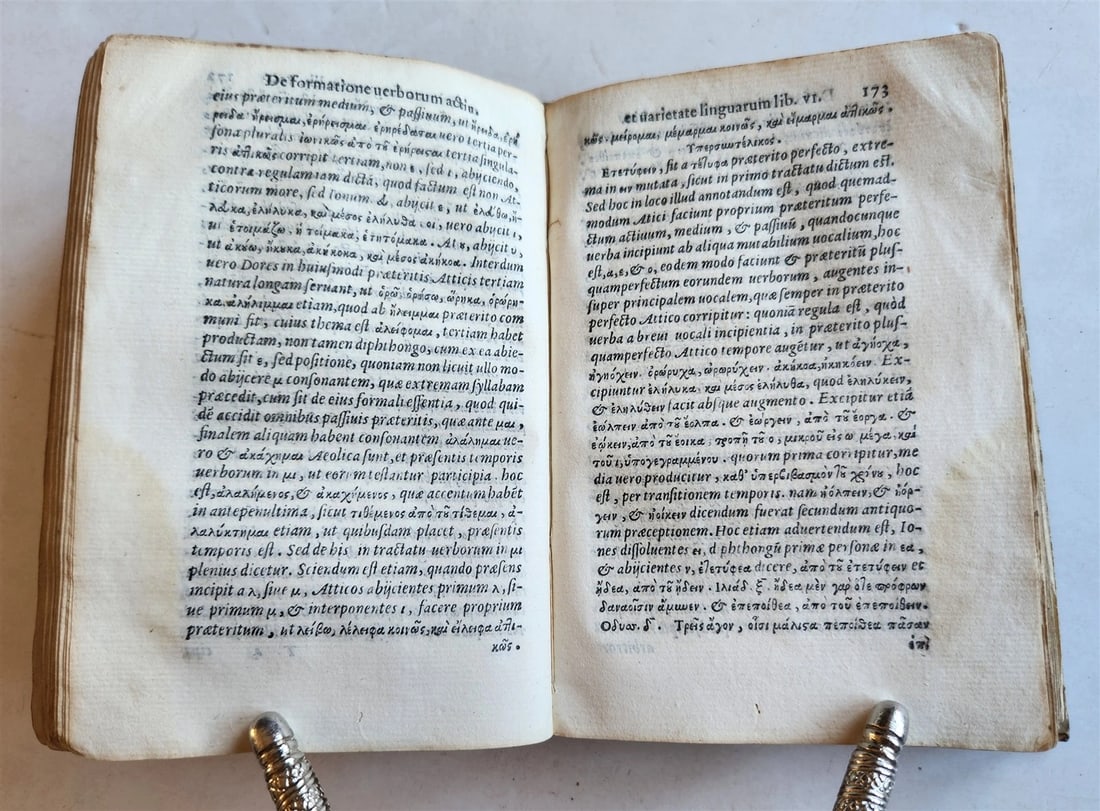 De formatione uerborum actiu,
eius præteritum medium, & passiuum, ut ἤρειδα, ἐρή
ρειδα ἤρεισμαι, ἐρήρεισμαι ἐρηρέδαται uero tertia per-
sona pluralis ἰωνικῶς ἀπὸ τοῦ ἐρήρεισαι tertia singula-
ris ἀττικῶς corripit tertiam, non ε, sed ι, abijciendo,
contra regulam iam dictā, quod factum est non At-
ticorum more, sed Ionum &, abijcit ε, ut
λυκα, ἐλήλυκα, καὶ μέσος ἐλήλυθα. οι, uero abijcit ι,
ut ἑτοιμάζω, ἡτοίμακα, ἐτητόμακα. At υ, abijcit υ,
ut ἀκούω, ἤκουκα, ἀκήκοκα, καὶ μέσος ἀκήκοα. Interdum
uero Dores in huiusmodi præteritis, Atticis tertiam
natura longam seruant, ut ὁρῶ, ὁρήσω, ὥρηκα, ὀρώρη-
κα. ἀλήλιμμαι etiam, quod ab ἤλειμμαι præterito com
muni fit, cuius thema est ἀλείφομαι, tertiam habet
productam, non tamen diphthongo, cum ex ea abie-
ctum sit ε, sed positione, quoniam non licuit ullo mo-
do abijcere μ consonantem, quæ extremam syllabam
præcedit, cum sit de eius formali essentia, quod qui-
dē accidit omnibus passiuis præteritis, quæ ante μαι,
finalem aliquam habent consonantem ἀλάλημαι ue-
ro & ἀκάχημαι Aeolica sunt, et præsentis temporis
uerborum in μι, ut eorum testantur participia. hoc
est, ἀλαλήμενος, & ἀκαχήμενος, quæ accentum habēt
in antepenultima, sicut τιθέμενος ἀπὸ τοῦ τίθεμαι, ἀ-
λαλύκτημαι etiam, ut quibusdam placet, præsentis
temporis est. Sed de his in tractatu uerborum in μι
plenius dicetur. Sciendum est etiam, quando præsens
incipit a λ, siue μ, Atticos abijcientes primum λ, si-
ue primum μ, & interponentes ι, facere proprium
præteritum, ut λείβω, λέλειφα κοινῶς, καὶ εἴλειφα ἀττι-
κῶς.
et uarietate linguarum lib. VI. 173
κῶς. μείρομαι, μέμαρμαι κοινῶς, καὶ εἵμαρμαι ἀττικῶς.
Ὑπερσυντέλικος.
Ἐτετύφειν, fit a τέτυφα præterito perfecto, extre-
ma in ειν mutata, sicut in primo tractatu dictum est.
Sed hoc in loco illud annotandum est, quod quemad-
modum Attici faciunt proprium præteritum perfe-
ctum actiuum, medium, & passiuū, quandocunque
uerba incipiunt ab aliqua mutabilium uocalium, hoc
est, α, ε, & ο, eodem modo faciunt & præteritū plus-
quamperfectum eorundem uerborum, augentes in-
super principalem uocalem, quæ semper in præterito
perfecto Attico corripitur: quoniā regula est, quòd
uerba a breui uocali incipientia, in præterito plus-
quamperfecto Attico tempore augētur, ut ἀγήοχα,
ἠγηόχειν. ὀρώρυχα, ὠρωρύχειν. ἀκήκοα, ἠκηκόειν. Ex-
cipiuntur ἐλήλυκα, καὶ μέσος ἐλήλυθα, quod ἐληλύκειν,
& ἐληλύθειν facit absque augmento. Excipitur etiā
ἐώλπειν ἀπὸ τοῦ ἔολπα. & ἐώργειν, ἀπὸ τοῦ ἔοργα. &
ἐῴκειν, ἀπὸ τοῦ ἔοικα, τροπῇ τοῦ ο, μικροῦ εἰς ω μέγα, καὶ
τοῦ ι, ὑπογεγραμμένου. quorum prima corripitur, me
dia uero producitur, καθ' ὑπερβιβασμὸν τοῦ χρόνου, hoc
est, per transitionem temporis. nam ἠόλπειν, & ἠόρ-
γειν, & ἠοίκειν dicendum fuerat secundum antiquo-
rum præceptionem. Hoc etiam aduertendum est, Io-
nes dissoluentes ει, d phthongū primæ personæ in εα,
& abijcientes ν, ἐτετύφεα dicere, ἀπὸ τοῦ ἐτετύφειν et
ᾔδεα, ἀπὸ τοῦ ᾔδειν. Ἰλιάδ. ξ. ᾔδεα μὲν γὰρ ὅτε πρόφρων
δαναοῖσιν ἄμυνεν. & ἐπεποίθεα, ἀπὸ τοῦ ἐπεποίθειν.
Οδυσ. δ. Τρεῖς ἄγον, οἷσι μάλιστα πεποίθεα πᾶσαν
ἐπὶ